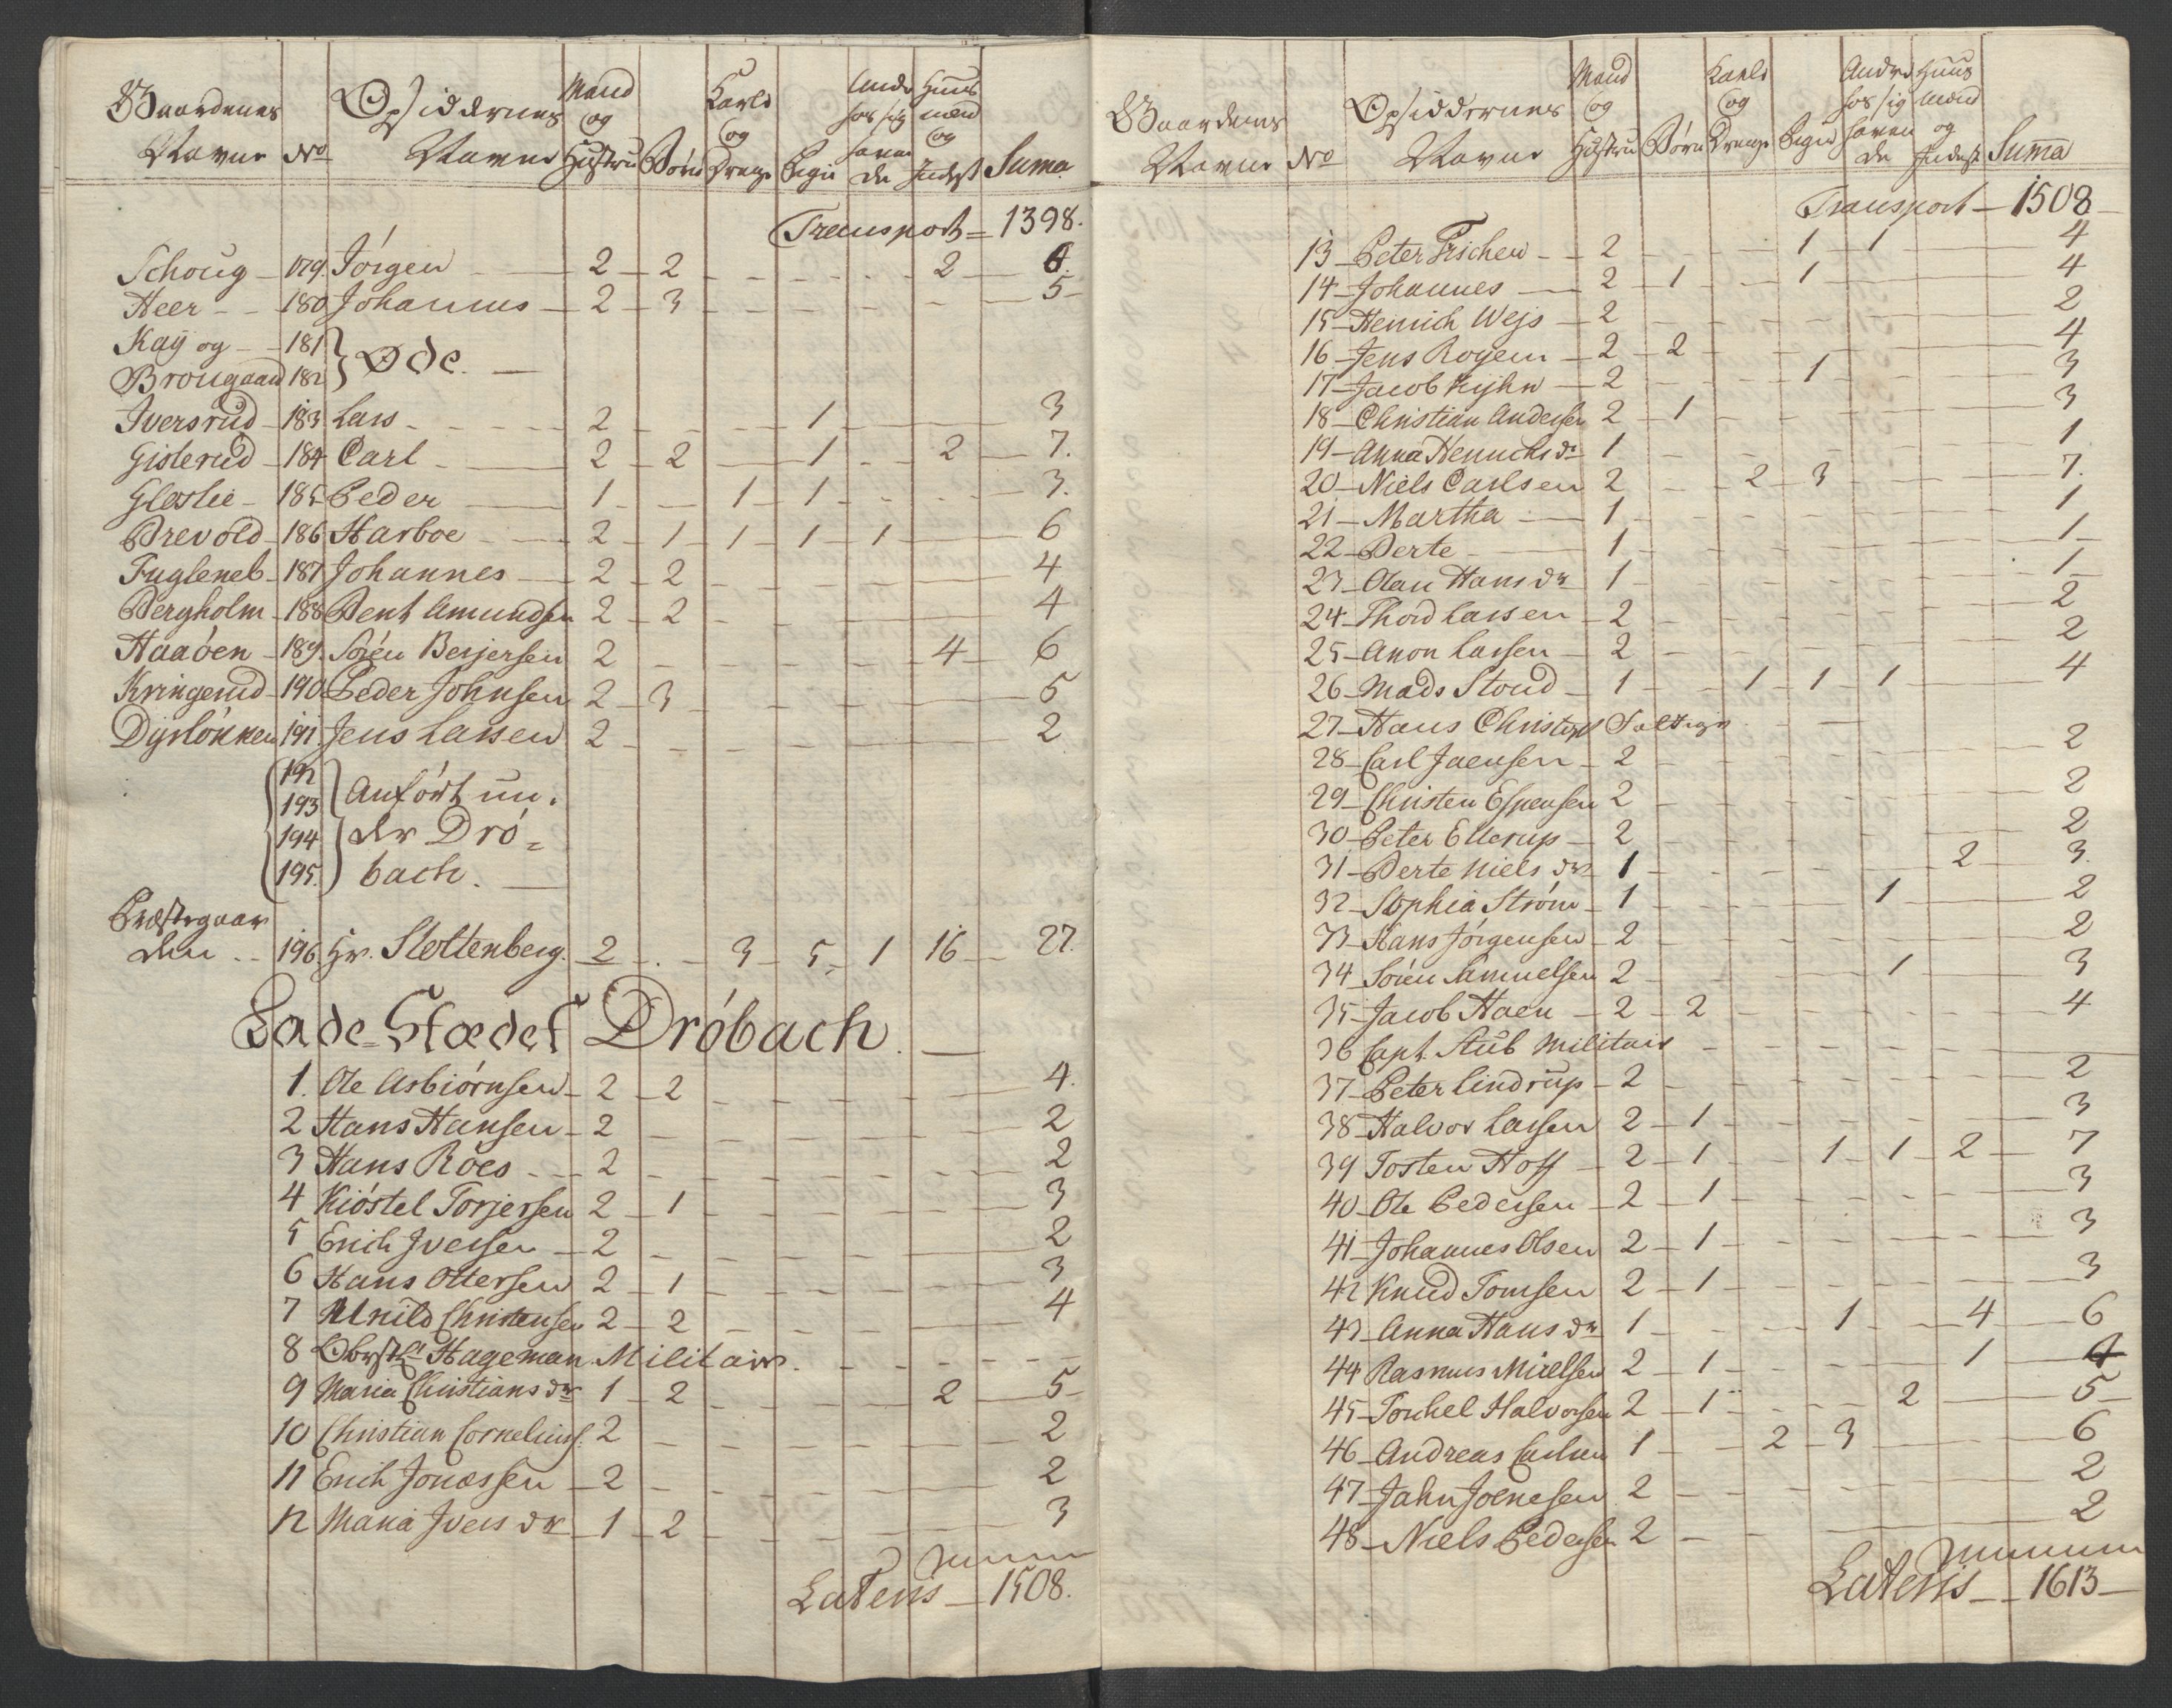 Gaardenes Navne No Opsiddernes Navne Mand og Hustru Børn Karle og Drenge Piger Andre hos sig havende Huus mænd og Inderst Suma
Transport = 1398.
Schoug - 179. Jörgen - 2 - 2 - 2 - 6.
Heer - 180 Johannes - 2 - 3 - 5 -
Kaÿ og - 181 } Øde. -
Brougaard 182
Iversrud - 183. Lars - 2 - 1 - 3
Gislerud - 184 Carl - 2 - 2 - 1 - 2 - 7.
Gloslie - 185 Peder - 1 - 1 - 1 - 3.
Brevold - 186 Harboe - 2 - 1 - 1 - 1 - 1 - 6
Fugleneb - 187 Johannes - 2 - 2 - 4
Bergholm - 188 Bent Amundsen 2 - 2 - 4
Haaöen - 189. Sören Berjersen 2 - 4 - 6
Kringerud - 190 Peder Johnsen 2 - 3 - 5
Dyrlökken 191. Jens Larsen 2 - 2
192 Anfört un-
193
194 der Drö-
195. bach. -
Præstegaar
den - 196. Hr. Stoltenberg. 2 - 3 - 5 - 1 16 - 27.
Lade-Stædet Dröbach. -
1. Ole Asbiörnsen - 2 - 2 - 4.
2 Hans Hansen - 2 - 2
3 Hans Röes - 2 - 2
4 Kiöstel Torjersen 2 - 1 - 3
5 Erich Iversen - 2 - 2
6 Hans Ottersen 2 - 1 - 3
7 Arnild Christensen 2 - 2 - 4
8 Obrstl. Hageman Militair. -
9 Maria Christians dr 1 - 2 - 2 - 5 -
10 Christian Cornelius. 2 - 2
11 Erich Jonassen - 2 - 2
12 Maria Ivers dr - 1 - 2 - 3
Lateris - 1508.
Gaardenes Navne No Opsiddernes Navne Mand og Hustru Børn Karle og Drenge Piger Andre hos sig haven de Huus mænd og Inderst Suma
Transport - 1508 -
13 - Peter Frischen - 2 - 1 - 1 - 4
14 - Johannes - 2 - 1 - 1 - 4
15 - Henrich Wejs - 2 - 2
16 - Jens Rogem - 2 - 2 - 4
17 - Jacob Kijhn - 2 - 1 - 3
18 - Christian Andersen 2 - 1 - 3
19 - Anna Henrichs dr 1 - 1
20 - Niels Carlsen 2 - 2 - 3 - 7.
21 - Martha - 1 - 1
22 - Berte - 1 - 1 -
23 - Olau Hans dr 1 - 1
24 - Thord Larsen - 2 - 2
25 - Anon Larsen - 2 - 2
26 - Mads Stoud - 1 - 1 - 1 - 1 - 4
27 - Hans Christoph Saltvigs - -
28 - Carl Jaensen - 2 - 2
29 - Christen Espensen 2 - 2
30 - Peter Ellerup - 2 - 2
31 - Berte Niels dr 1 - 2 - 3.
32 - Sophia Ström - 1 - 1 - 2
33 - Hans Jörgensen - 2 - 2
34 - Sören Samuelsen 2 - 1 - 3
35 - Jacob Haen - 2 - 2 - 4
36 Capt. Stub Militair -
37 - Peter Lindrup - 2 - 2
38 - Halvor Larsen 2 - 1 - 3
39 Tosten Hoff - 2 - 1 - 1 - 1 - 2 - 7
40 - Ole Pedersen - 2 - 1 - 3
41 - Johannes Olsen 2 - 1 - 3
42 Knud Tomsen 2 - 1 - 3
43 - Anna Hans dr 1 - 1 - 4 - 6
44 Rasmus Mielsen 2 - 1 - 1 - 4
45 - Torchel Halvorsen 2 - 1 - 2 - 5 -
46 - Andreas Carlsen 1 - 2 - 3 - 6
47 - Jahn Joensen 2 - 2
48 - Niels Pedersen 2 - 2
Lateris - 1613 -